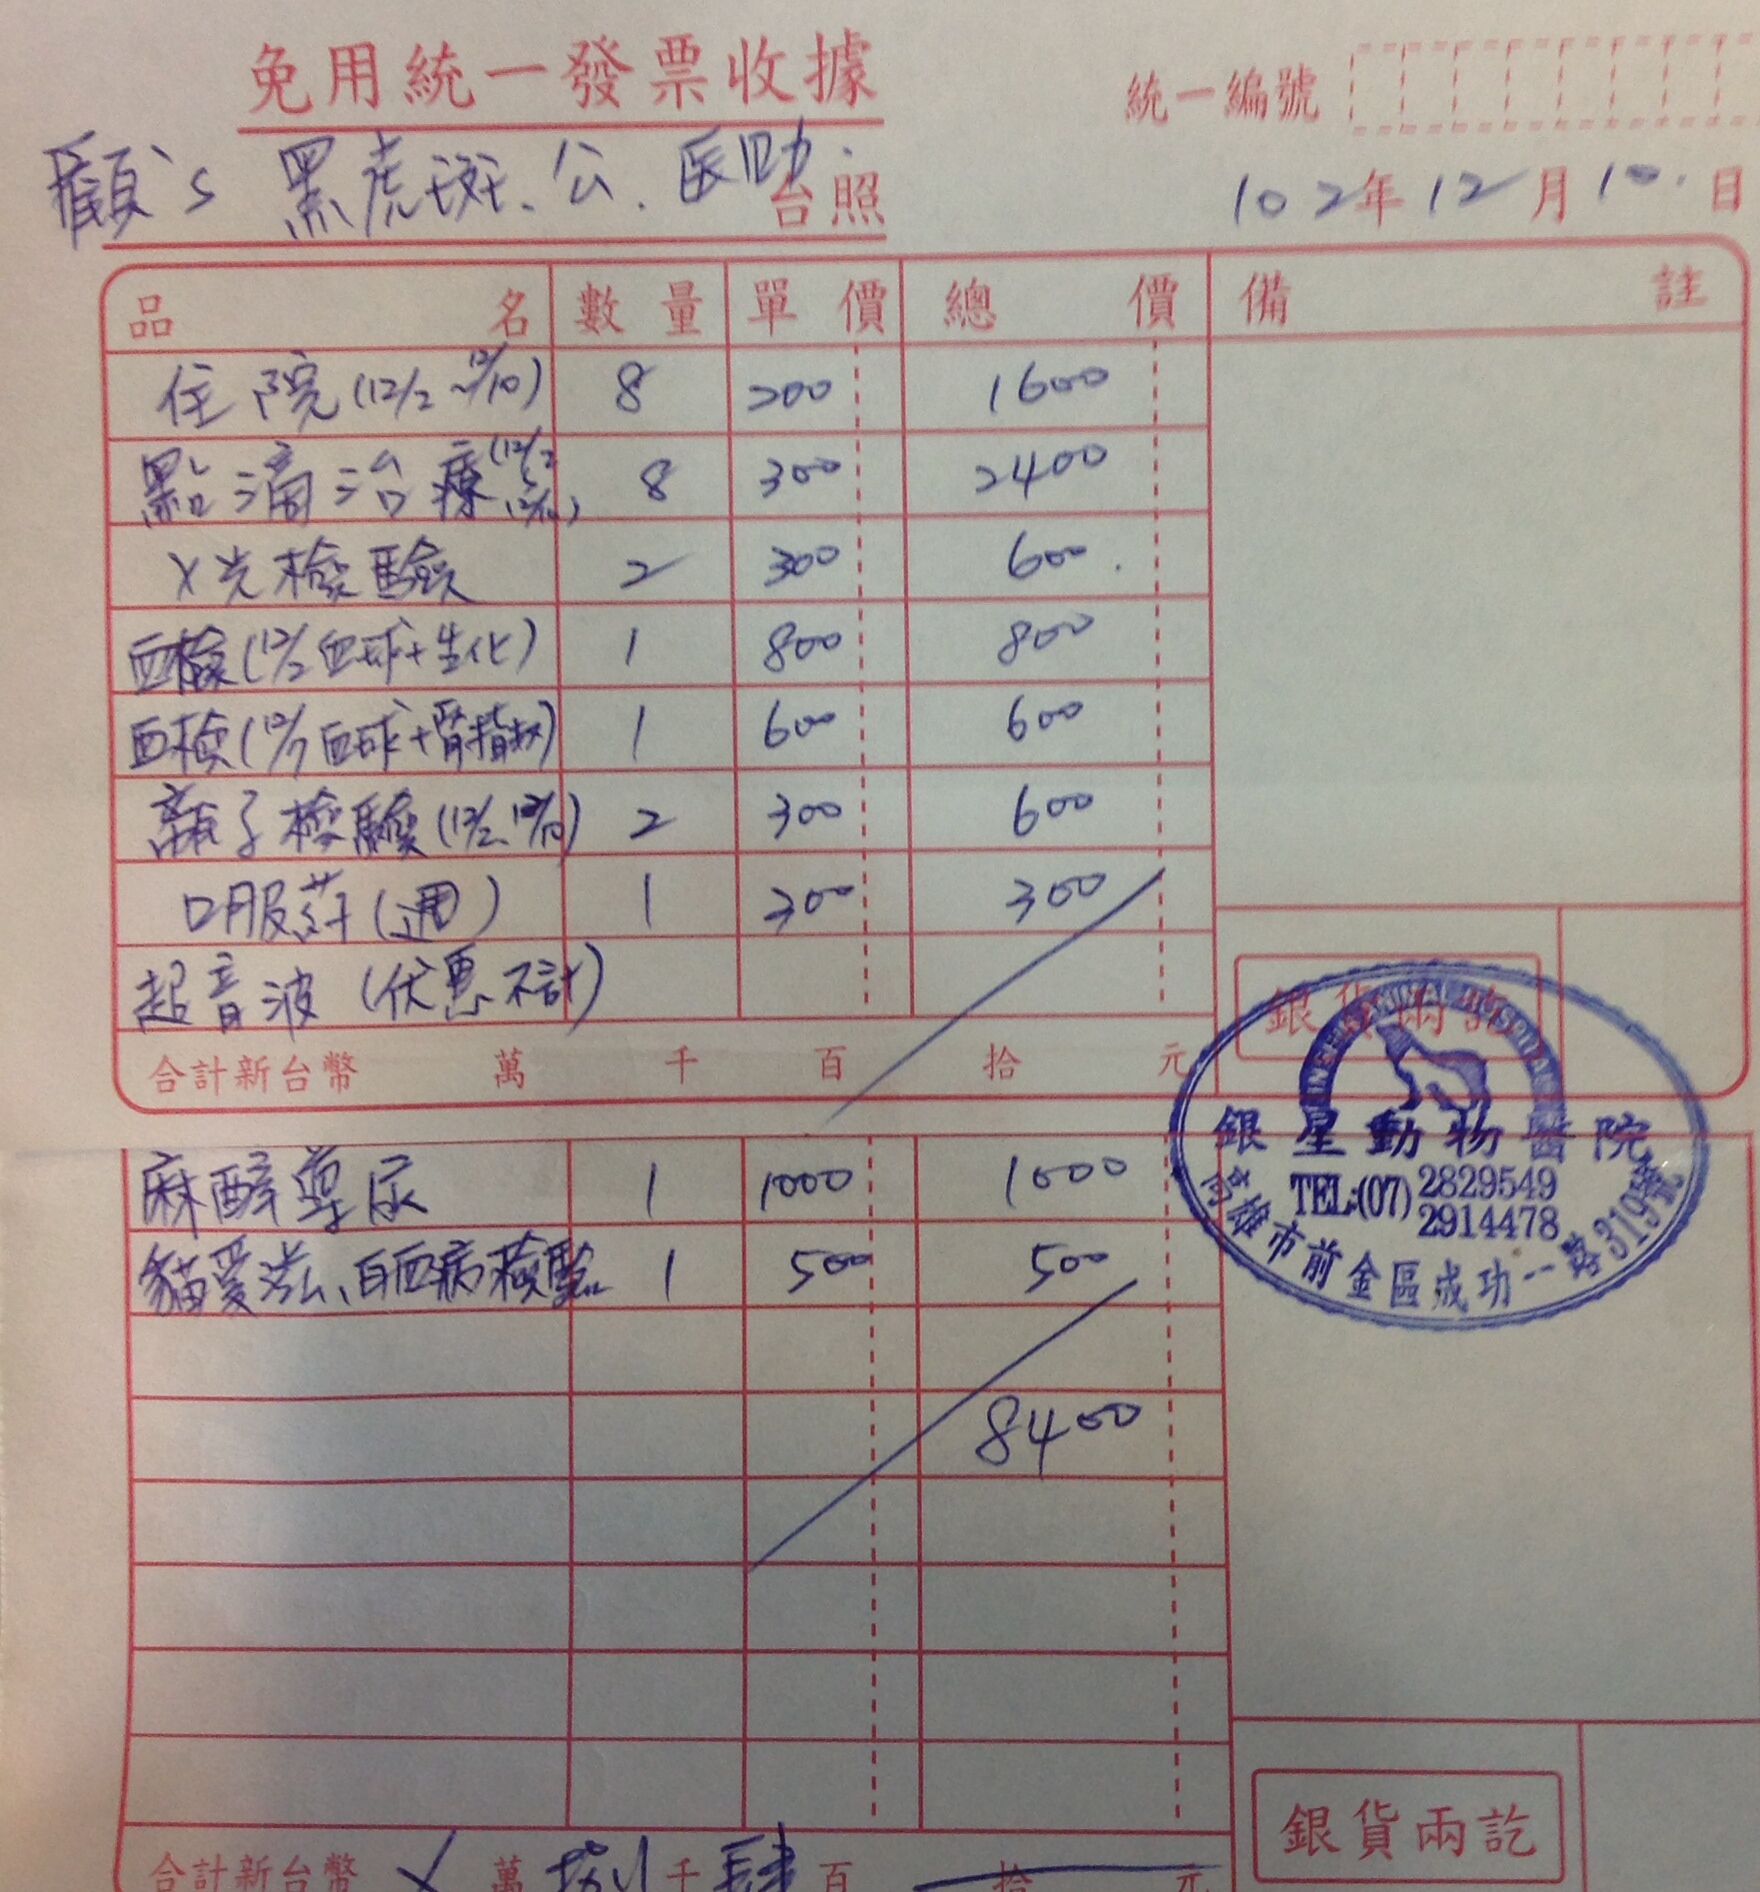 免用統一發票收據
統一編號
顧's 黑虎斑.公.醫助. 台照
102年12月10.日
品名 數量 單價 總價 備註
住院(12/2~12/10) 8 200 1600
點滴治療(12/2~12/10) 8 300 2400
X光檢驗 2 300 600.
血檢(12/2血球+生化) 1 800 800
血檢(12/7血球+腎指數) 1 600 600
離子檢驗(12/2.12/10) 2 300 600
口服葯(週) 1 300 300
超音波(优惠不計)
銀貨兩訖
合計新台幣 萬 千 百 拾 元
銀星動物醫院
TEL:(07) 2829549
2914478
高雄市前金區成功一路319號
麻醉導尿 1 1000 1000
貓愛滋、白血病檢驗 1 500 500
8400
銀貨兩訖
合計新台幣 X 萬 捌 千 肆 百 拾 元